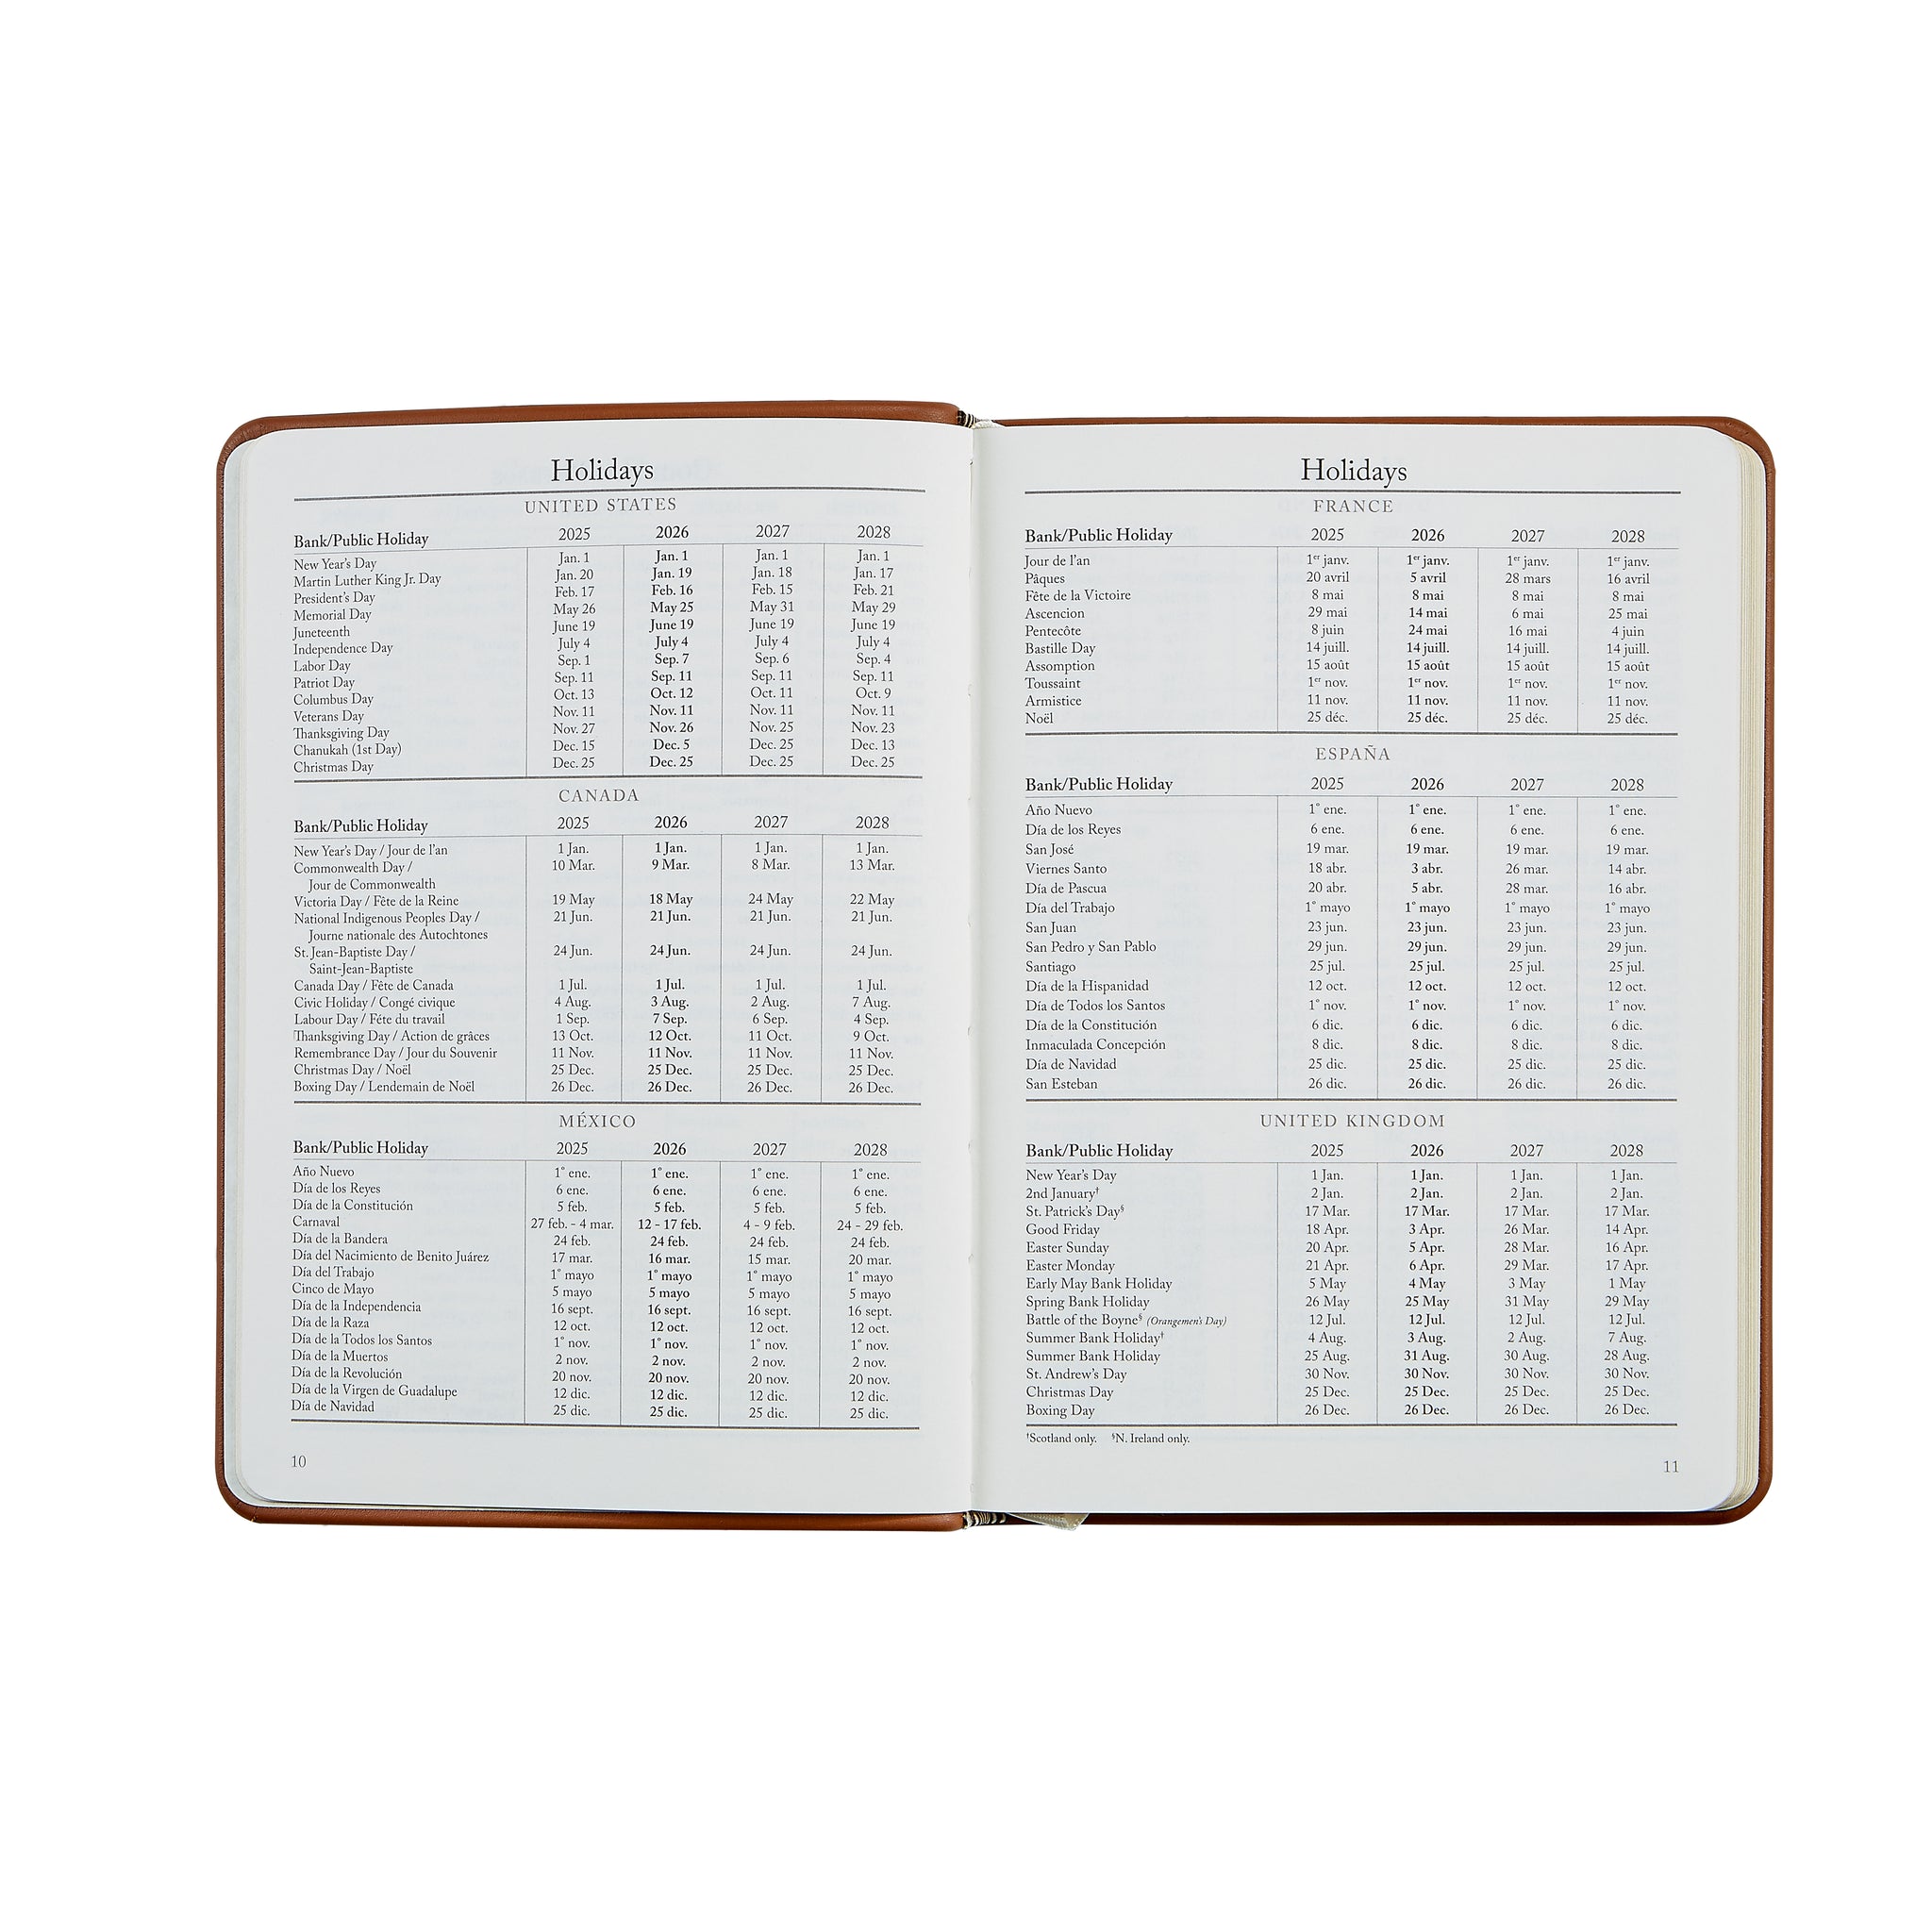 Holidays
UNITED STATES
Bank/Public Holiday 2025 2026 2027 2028
New Year's Day Jan. 1 Jan. 1 Jan. 1 Jan. 1
Martin Luther King Jr. Day Jan. 20 Jan. 19 Jan. 18 Jan. 17
President's Day Feb. 17 Feb. 16 Feb. 15 Feb. 21
Memorial Day May 26 May 25 May 31 May 29
Juneteenth June 19 June 19 June 19 June 19
Independence Day July 4 July 4 July 4 July 4
Labor Day Sep. 1 Sep. 7 Sep. 6 Sep. 4
Patriot Day Sep. 11 Sep. 11 Sep. 11 Sep. 11
Columbus Day Oct. 13 Oct. 12 Oct. 11 Oct. 9
Veterans Day Nov. 11 Nov. 11 Nov. 11 Nov. 11
Thanksgiving Day Nov. 27 Nov. 26 Nov. 25 Nov. 23
Chanukah (1st Day) Dec. 15 Dec. 5 Dec. 25 Dec. 13
Christmas Day Dec. 25 Dec. 25 Dec. 25 Dec. 25
CANADA
Bank/Public Holiday 2025 2026 2027 2028
New Year's Day / Jour de l'an 1 Jan. 1 Jan. 1 Jan. 1 Jan.
Commonwealth Day / 10 Mar. 9 Mar. 8 Mar. 13 Mar.
Jour de Commonwealth
Victoria Day / Fête de la Reine 19 May 18 May 24 May 22 May
National Indigenous Peoples Day / 21 Jun. 21 Jun. 21 Jun. 21 Jun.
Journe nationale des Autochtones
St. Jean-Baptiste Day / 24 Jun. 24 Jun. 24 Jun. 24 Jun.
Saint-Jean-Baptiste
Canada Day / Fête de Canada 1 Jul. 1 Jul. 1 Jul. 1 Jul.
Civic Holiday / Congé civique 4 Aug. 3 Aug. 2 Aug. 7 Aug.
Labour Day / Féte du travail 1 Sep. 7 Sep. 6 Sep. 4 Sep.
Thanksgiving Day / Action de grâces 13 Oct. 12 Oct. 11 Oct. 9 Oct.
Remembrance Day / Jour du Souvenir 11 Nov. 11 Nov. 11 Nov. 11 Nov.
Christmas Day / Noël 25 Dec. 25 Dec. 25 Dec. 25 Dec.
Boxing Day / Lendemain de Noël 26 Dec. 26 Dec. 26 Dec. 26 Dec.
MÉXICO
Bank/Public Holiday 2025 2026 2027 2028
Año Nuevo 1° ene. 1° ene. 1° ene. 1° ene.
Día de los Reyes 6 ene. 6 ene. 6 ene. 6 ene.
Día de la Constitución 5 feb. 5 feb. 5 feb. 5 feb.
Carnaval 27 feb. - 4 mar. 12 - 17 feb. 4 - 9 feb. 24 - 29 feb.
Día de la Bandera 24 feb. 24 feb. 24 feb. 24 feb.
Día del Nacimiento de Benito Juárez 17 mar. 16 mar. 15 mar. 20 mar.
Día del Trabajo 1° mayo 1° mayo 1° mayo 1° mayo
Cinco de Mayo 5 mayo 5 mayo 5 mayo 5 mayo
Día de la Independencia 16 sept. 16 sept. 16 sept. 16 sept.
Día de la Raza 12 oct. 12 oct. 12 oct. 12 oct.
Día de la Todos los Santos 1° nov. 1° nov. 1° nov. 1° nov.
Día de la Muertos 2 nov. 2 nov. 2 nov. 2 nov.
Día de la Revolución 20 nov. 20 nov. 20 nov. 20 nov.
Día de la Virgen de Guadalupe 12 dic. 12 dic. 12 dic. 12 dic.
Día de Navidad 25 dic. 25 dic. 25 dic. 25 dic.
10
Holidays
FRANCE
Bank/Public Holiday 2025 2026 2027 2028
Jour de l'an 1er janv. 1er janv. 1er janv. 1er janv.
Pâques 20 avril 5 avril 28 mars 16 avril
Fête de la Victoire 8 mai 8 mai 8 mai 8 mai
Ascencion 29 mai 14 mai 6 mai 25 mai
Pentecôte 8 juin 24 mai 16 mai 4 juin
Bastille Day 14 juill. 14 juill. 14 juill. 14 juill.
Assomption 15 août 15 août 15 août 15 août
Toussaint 1er nov. 1er nov. 1er nov. 1er nov.
Armistice 11 nov. 11 nov. 11 nov. 11 nov.
Noël 25 déc. 25 déc. 25 déc. 25 déc.
ESPAÑA
Bank/Public Holiday 2025 2026 2027 2028
Año Nuevo 1° ene. 1° ene. 1° ene. 1° ene.
Día de los Reyes 6 ene. 6 ene. 6 ene. 6 ene.
San José 19 mar. 19 mar. 19 mar. 19 mar.
Viernes Santo 18 abr. 3 abr. 26 mar. 14 abr.
Día de Pascua 20 abr. 5 abr. 28 mar. 16 abr.
Día del Trabajo 1° mayo 1° mayo 1° mayo 1° mayo
San Juan 23 jun. 23 jun. 23 jun. 23 jun.
San Pedro y San Pablo 29 jun. 29 jun. 29 jun. 29 jun.
Santiago 25 jul. 25 jul. 25 jul. 25 jul.
Día de la Hispanidad 12 oct. 12 oct. 12 oct. 12 oct.
Día de Todos los Santos 1° nov. 1° nov. 1° nov. 1° nov.
Día de la Constitución 6 dic. 6 dic. 6 dic. 6 dic.
Inmaculada Concepción 8 dic. 8 dic. 8 dic. 8 dic.
Día de Navidad 25 dic. 25 dic. 25 dic. 25 dic.
San Esteban 26 dic. 26 dic. 26 dic. 26 dic.
UNITED KINGDOM
Bank/Public Holiday 2025 2026 2027 2028
New Year's Day 1 Jan. 1 Jan. 1 Jan. 1 Jan.
2nd January† 2 Jan. 2 Jan. 2 Jan. 2 Jan.
St. Patrick's Day§ 17 Mar. 17 Mar. 17 Mar. 17 Mar.
Good Friday 18 Apr. 3 Apr. 26 Mar. 14 Apr.
Easter Sunday 20 Apr. 5 Apr. 28 Mar. 16 Apr.
Easter Monday 21 Apr. 6 Apr. 29 Mar. 17 Apr.
Early May Bank Holiday 5 May 4 May 3 May 1 May
Spring Bank Holiday 26 May 25 May 31 May 29 May
Battle of the Boyne§ (Orangemen's Day) 12 Jul. 12 Jul. 12 Jul. 12 Jul.
Summer Bank Holiday† 4 Aug. 3 Aug. 2 Aug. 7 Aug.
Summer Bank Holiday 25 Aug. 31 Aug. 30 Aug. 28 Aug.
St. Andrew's Day 30 Nov. 30 Nov. 30 Nov. 30 Nov.
Christmas Day 25 Dec. 25 Dec. 25 Dec. 25 Dec.
Boxing Day 26 Dec. 26 Dec. 26 Dec. 26 Dec.
†Scotland only. §N. Ireland only.
11